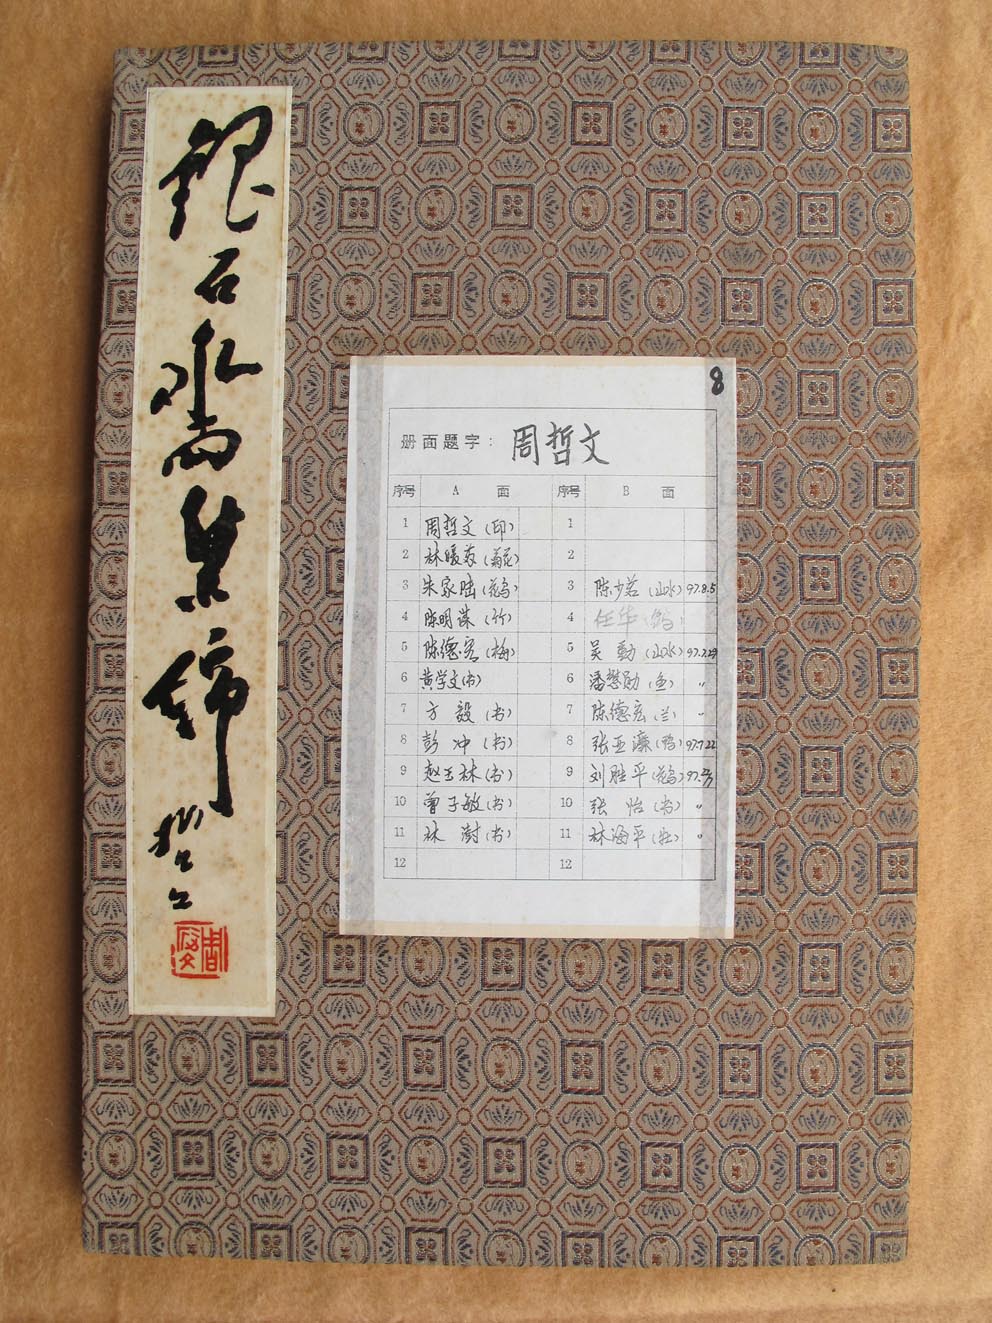 石斋集锦
哲文
8
册面题字： 周哲文
序号 A 面 序号 B 面
1 周哲文（印） 1
2 林暖苏（菊花） 2
3 朱家陆（花鸟） 3 陈少若（山水）97.8.5
4 陈明谋（竹） 4 任华
5 陈德宏（梅） 5 吴勤（山水）97.7.29
6 黄学文（书） 6 潘懋勋（鱼） 〃
7 方毅（书） 7 陈德宏（兰） 〃
8 彭冲（书） 8 张亚濂（鸭）97.7.22
9 赵玉林（书） 9 刘胜平（花鸟）97.
10 曾子敏（书） 10 张怡（书） 〃
11 林澍（书） 11 林海平 〃
12 12